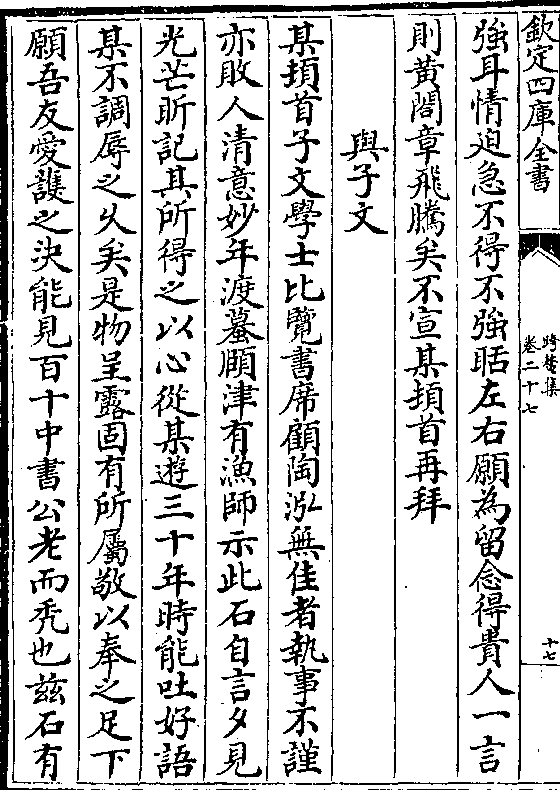 欽定四庫全書
跨鼇集
卷二十七
十七
強耳情迫急不得不強聒左右願為留念得貴人一言
則黄閤章飛騰矣不宣某頓首再拜
與子文
某頓首子文學士比覽書席顧陶泓無佳者執事不謹
亦敗人清意妙年渡蟇頤津有漁師示此石自言夕見
光芒昕記其所得之以心從某遊三十年時能吐好語
某不調辱之久矣是物呈露固有所屬敬以奉之足下
願吾友愛護之決能見百十中書公老而禿也兹石有